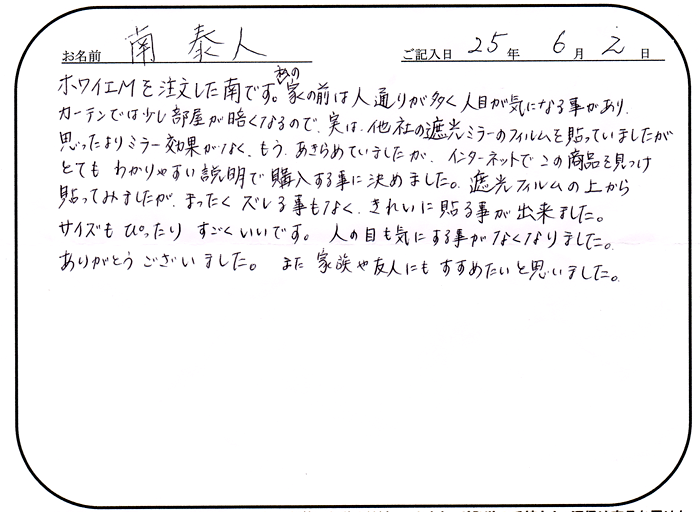 お名前 南 泰人 ご記入日 25年 6月 2日
ホワイエMを注文した南です。私の家の前は人通りが多く人目が気になる事があり、
カーテンでは少し部屋が暗くなるので、実は、他社の遮光ミラーのフィルムを貼っていましたが
思ったよりミラー効果がなく、もう、あきらめていましたが、インターネットでこの商品を見つけ
とても わかりやすい説明で購入する事に決めました。遮光フィルムの上から
貼ってみましたが、まったく ズレる事もなく、きれいに貼る事が出来ました。
サイズも ぴったり すごくいいです。 人の目も気にする事がなくなりました。
ありがとう ございました。 また 家族や友人にも すすめたいと思いました。